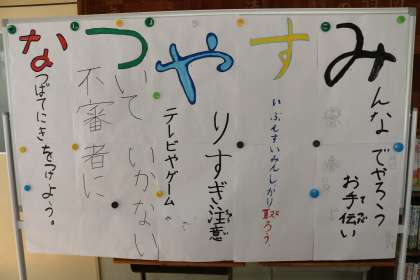 なつばてにきをつけよう。
不審者に
ついて いかない
テレビやゲームの
やりすぎ注意
すいぶんすいみんしっかり取ろう。
みんなでやろう
お手伝い